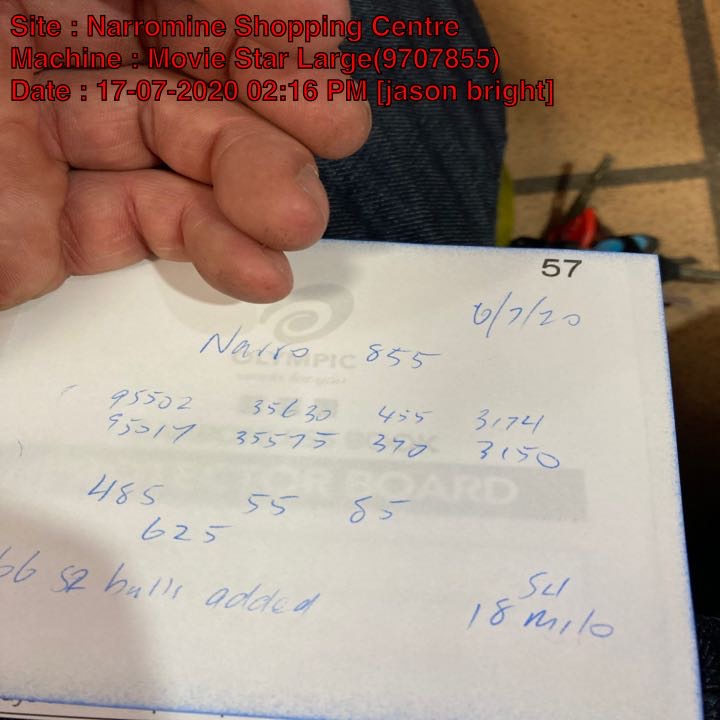 Site : Narromine Shopping Centre
Machine : Movie Star Large(9707855)
Date : 17-07-2020 02:16 PM [jason bright]
57
6/7/20
Narro 855
OLYMPIC
95502 35630 455 3174
95017 35575 370 3150
BOARD
485 55 85
625
66 52 balls added
54
18 Milo